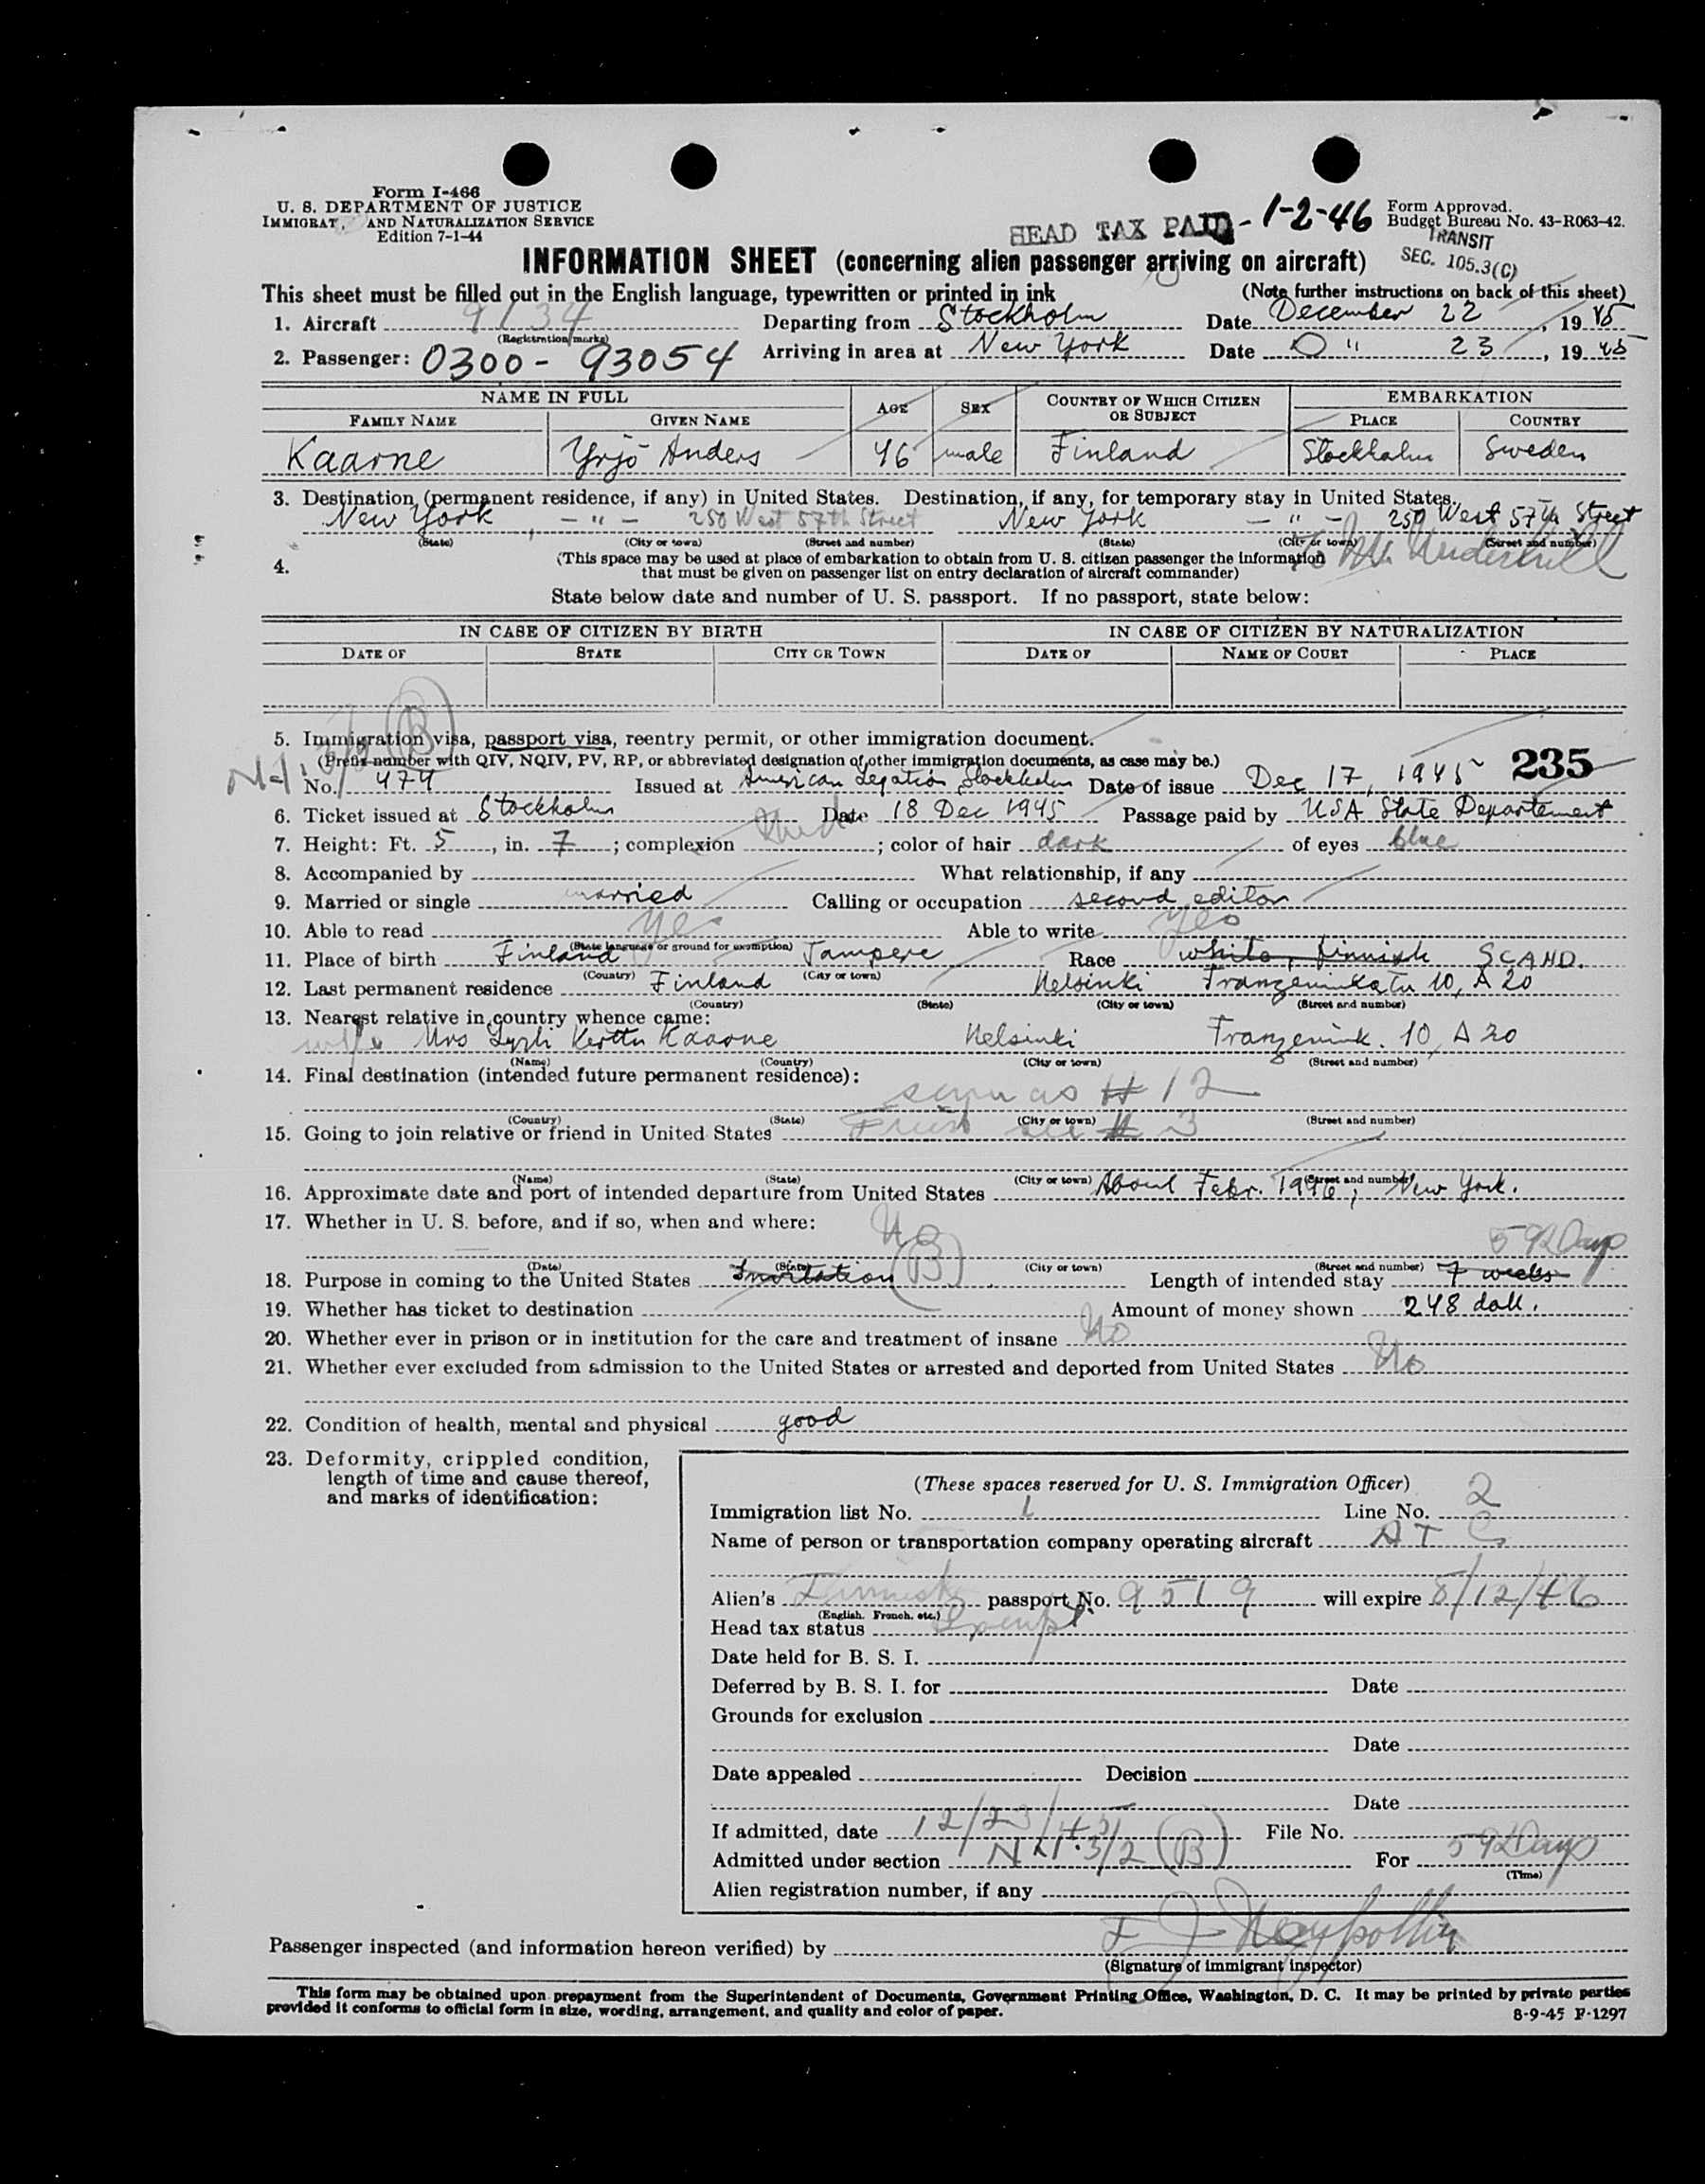 Form I-466
U. S. DEPARTMENT OF JUSTICE
IMMIGRAT AND NATURALIZATION SERVICE
Edition 7-1-44
HEAD TAX PAID - 1-2-46
Form Approved.
Budget Bureau No. 43-R063-42.
TRANSIT
SEC. 105.3(C)
INFORMATION SHEET (concerning alien passenger arriving on aircraft)
This sheet must be filled out in the English language, typewritten or printed in ink (Note further instructions on back of this sheet)
1. Aircraft 9134 Departing from Stockholm Date December 22, 1945
(Registration marks)
2. Passenger: 0300-93054 Arriving in area at New York Date D " 23, 1945
NAME IN FULL AGE SEX COUNTRY OF WHICH CITIZEN OR SUBJECT EMBARKATION
FAMILY NAME GIVEN NAME PLACE COUNTRY
Kaarne Yrjö Anders 46 male Finland Stockholm Sweden
3. Destination (permanent residence, if any) in United States. Destination, if any, for temporary stay in United States.
New York, - " - 250 West 57th Street New York - " - 250 West 57th Street
(State) (City or town) (Street and number) (State) (City or town) (Street and number)
4. (This space may be used at place of embarkation to obtain from U. S. citizen passenger the information
that must be given on passenger list on entry declaration of aircraft commander)
Underhill
State below date and number of U. S. passport. If no passport, state below:
IN CASE OF CITIZEN BY BIRTH IN CASE OF CITIZEN BY NATURALIZATION
DATE OF STATE CITY OR TOWN DATE OF NAME OF COURT PLACE
5. Immigration visa, passport visa, reentry permit, or other immigration document.
(Prefix number with QIV, NQIV, PV, RP, or abbreviated designation of other immigration documents, as case may be.) 235
N-1. 3/2 (B)
No. 474 Issued at American Legation, Stockholm Date of issue Dec 17, 1945
6. Ticket issued at Stockholm Date 18 Dec 1945 Passage paid by USA State Departement
7. Height: Ft. 5, in. 7; complexion ; color of hair dark of eyes blue
8. Accompanied by What relationship, if any
9. Married or single married Calling or occupation second editor
10. Able to read yes Able to write yes
(State language or ground for exemption)
11. Place of birth Finland Tampere Race white, finnish SCAND.
(Country) (City or town)
12. Last permanent residence Finland Helsinki Franzeninkatu 10, A 20
(Country) (State) (City or town) (Street and number)
13. Nearest relative in country whence came:
wife Mrs Kerttu Kaarne Helsinki Franzenink. 10, A 20
(Name) (Country) (City or town) (Street and number)
14. Final destination (intended future permanent residence):
same as # 12
(Country) (State) (City or town) (Street and number)
15. Going to join relative or friend in United States see # 3
(Name) (State) (City or town) (Street and number)
16. Approximate date and port of intended departure from United States About Febr. 1946, New York.
17. Whether in U. S. before, and if so, when and where:
No
(Date) (State) (City or town) (Street and number)
592 Days
18. Purpose in coming to the United States Invitation (B) Length of intended stay 7 weeks
19. Whether has ticket to destination Amount of money shown 248 doll.
20. Whether ever in prison or in institution for the care and treatment of insane No
21. Whether ever excluded from admission to the United States or arrested and deported from United States No
22. Condition of health, mental and physical good
23. Deformity, crippled condition,
length of time and cause thereof,
and marks of identification:
(These spaces reserved for U. S. Immigration Officer)
Immigration list No. 1 Line No. 2
Name of person or transportation company operating aircraft A T C
Alien's Finnish passport No. 9519 will expire 8/12/46
(English, French, etc.)
Head tax status Exempt
Date held for B. S. I.
Deferred by B. S. I. for Date
Grounds for exclusion
Date
Date appealed Decision
Date
If admitted, date 12/23/45 File No.
Admitted under section N-1. 3/2 (B) For 592 Days
(Time)
Alien registration number, if any
Passenger inspected (and information hereon verified) by
(Signature of immigrant inspector)
This form may be obtained upon prepayment from the Superintendent of Documents, Government Printing Office, Washington, D. C. It may be printed by private parties
provided it conforms to official form in size, wording, arrangement, and quality and color of paper.
8-9-45 F-1297